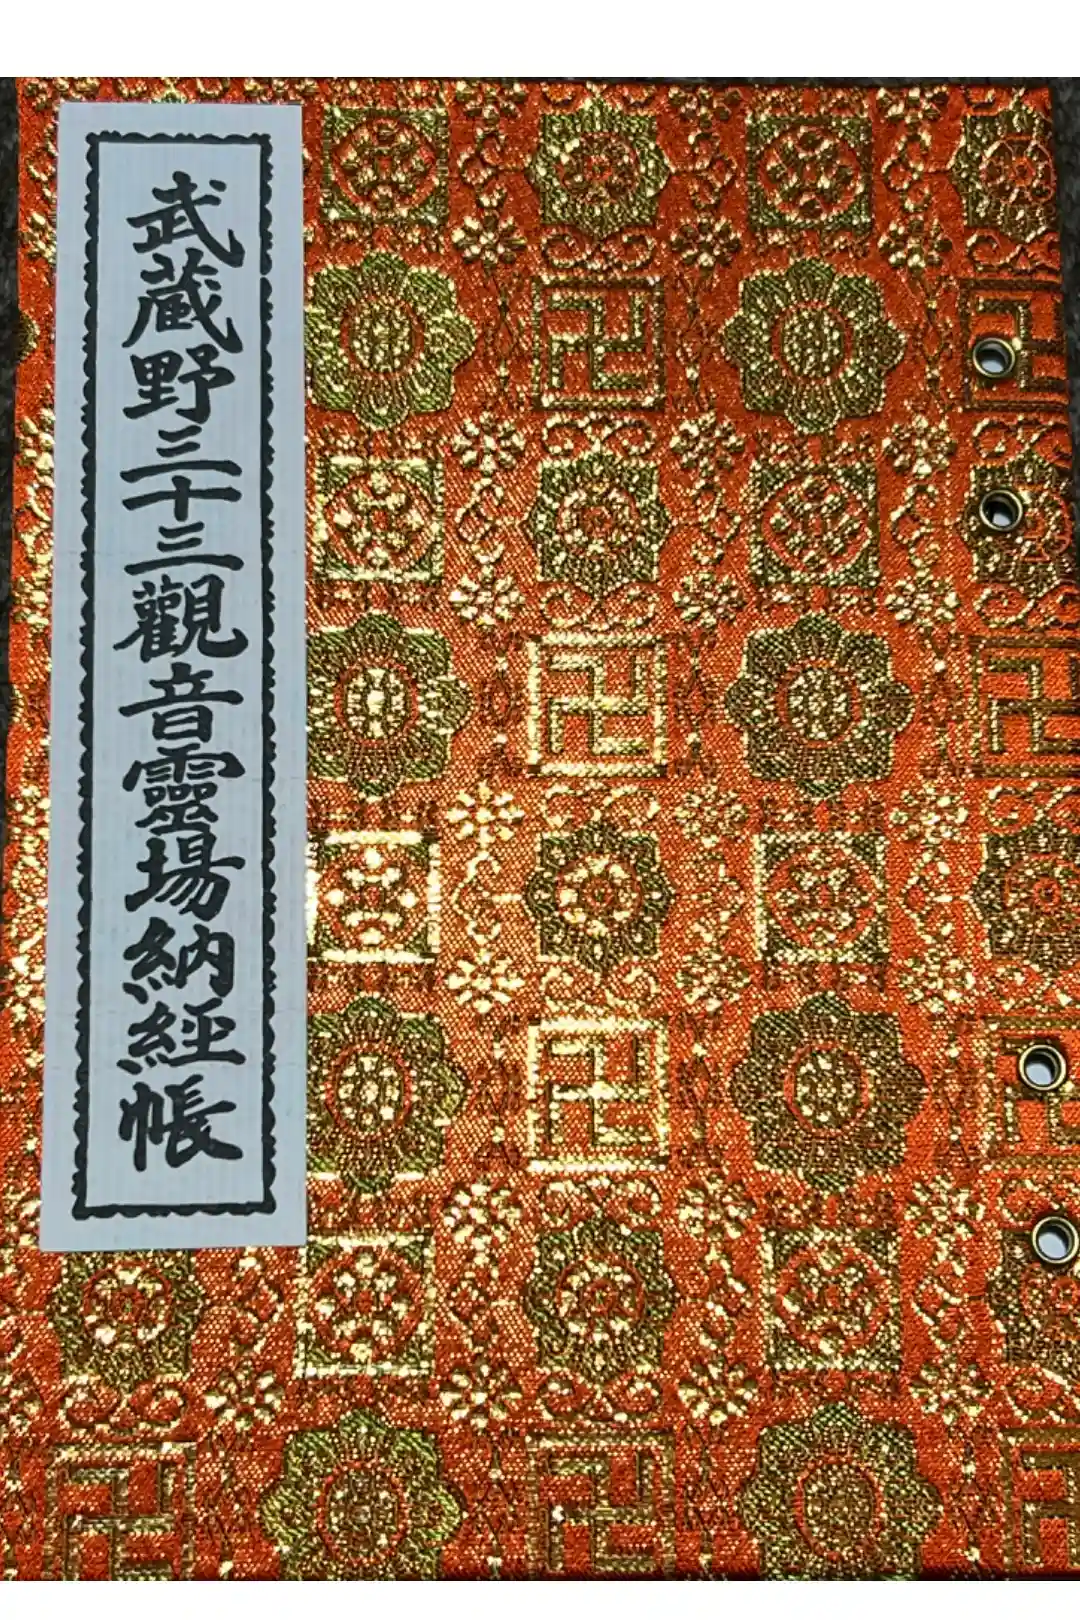 武蔵野三十三觀音靈場納経帳